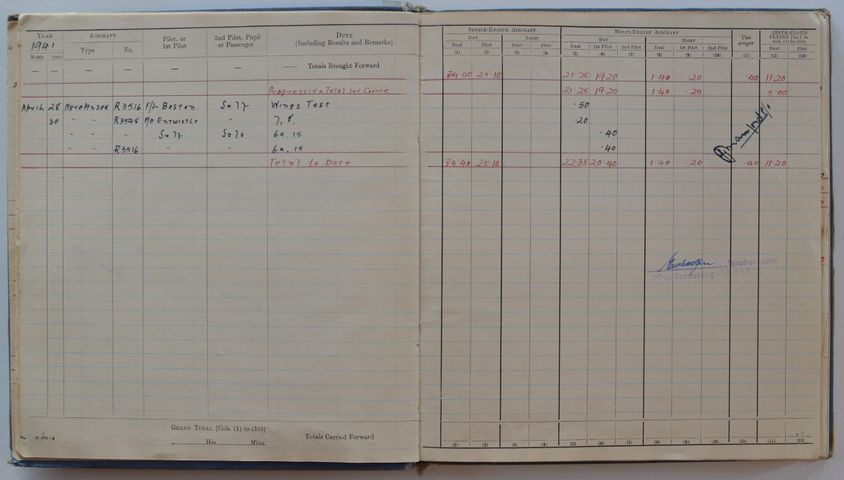 YEAR AIRCRAFT Pilot, or 1st Pilot 2nd Pilot, Pupil or Passenger DUTY (Including Results and Remarks) SINGLE-ENGINE AIRCRAFT MULTI-ENGINE AIRCRAFT Pas- senger
1941 DAY NIGHT DAY NIGHT
Month Date Type No. Dual Pilot Dual Pilot Dual 1st Pilot 2nd Pilot Dual 1st Pilot 2nd Pilot Dual Pilot
(1) (2) (3) (4) (5) (6) (7) (8) (9) (10) (11) (12) (13)
— — — — — — —— Totals Brought Forward 34·40 25·10 21·25 19·20 1·40 ·20 ·40 11·20
Progressive Total for Course 21·25 19·20 1·40 ·20 5·00
April 28 AVRO ANSON R3516 F/L BOSTON SELF WINGS TEST ·50
30 " " P/O ENTWISTLE " 7, 8. ·20
" " " SELF SOLO 6a, 15 ·40
" " R3516 " " 6a, 15 ·40
Total to Date 34·40 25·10 22·35 20·40 1·40 ·20 ·40 11·20
Squadron Leader
Officer Commanding
GRAND TOTAL [Cols. (1) to (10)]
Hrs. Mins. Totals Carried Forward
(1) (2) (3) (4) (5) (6) (7) (8) (9) (10) (11) (12) (13)